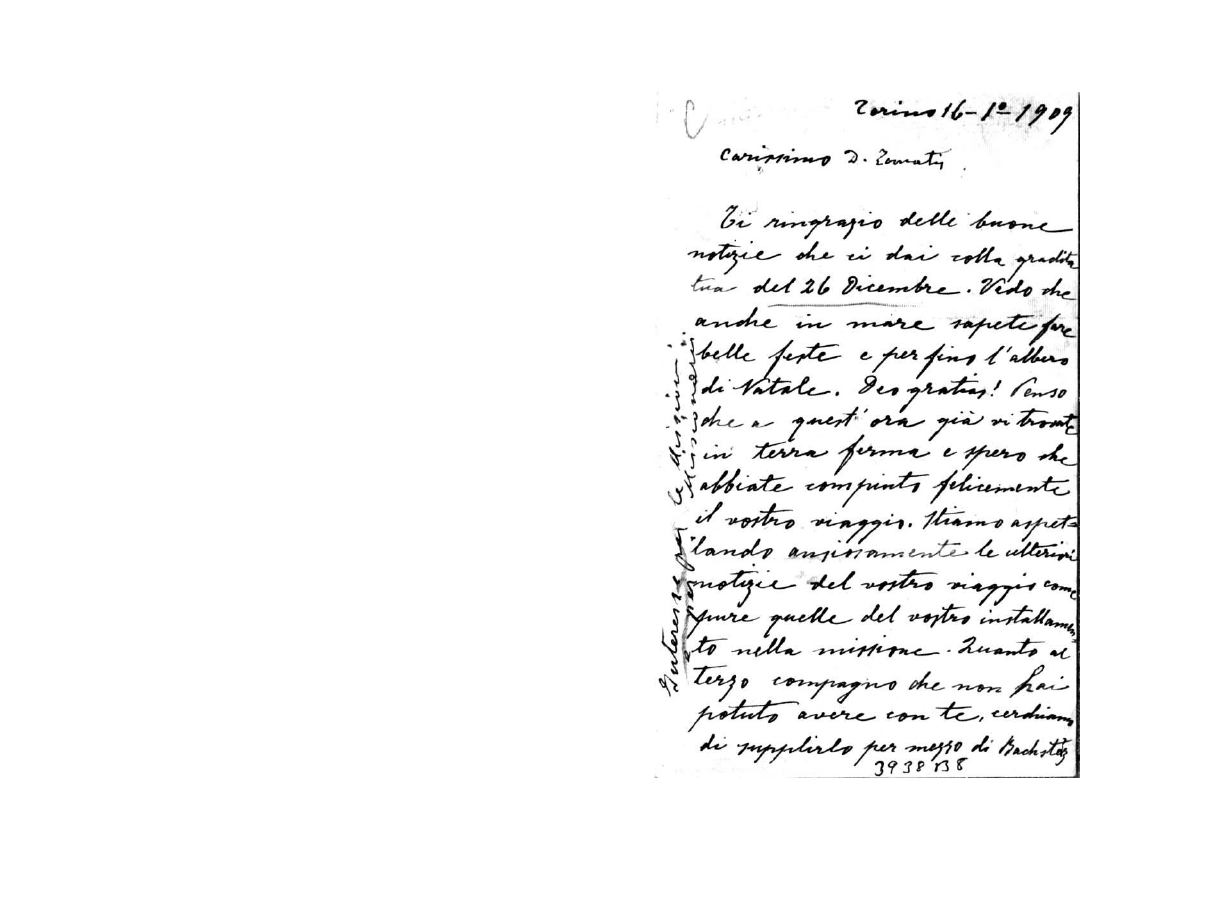 Torino 16-1º-1909
Carissimo D. Tomatis
Ti ringrazio delle buone
notizie che ci dai colla gradita
tua del 26 Dicembre. Vedo che
anche in mare sapete fare
belle feste e per fino l'albero
di Natale. Deo gratias! Penso
che a quest'ora già vi trovate
in terra ferma e spero che
abbiate compiuto felicemente
il vostro viaggio. Stiamo aspet=
tando ansiosamente le ulteriori
notizie del vostro viaggio come
pure quelle del vostro installamen=
to nella missione. Quanto al
terzo compagno che non hai
potuto avere con te, cerchiamo
di supplirlo per mezzo di
3938 B8
Interesse per le Missioni
e per i Missionari